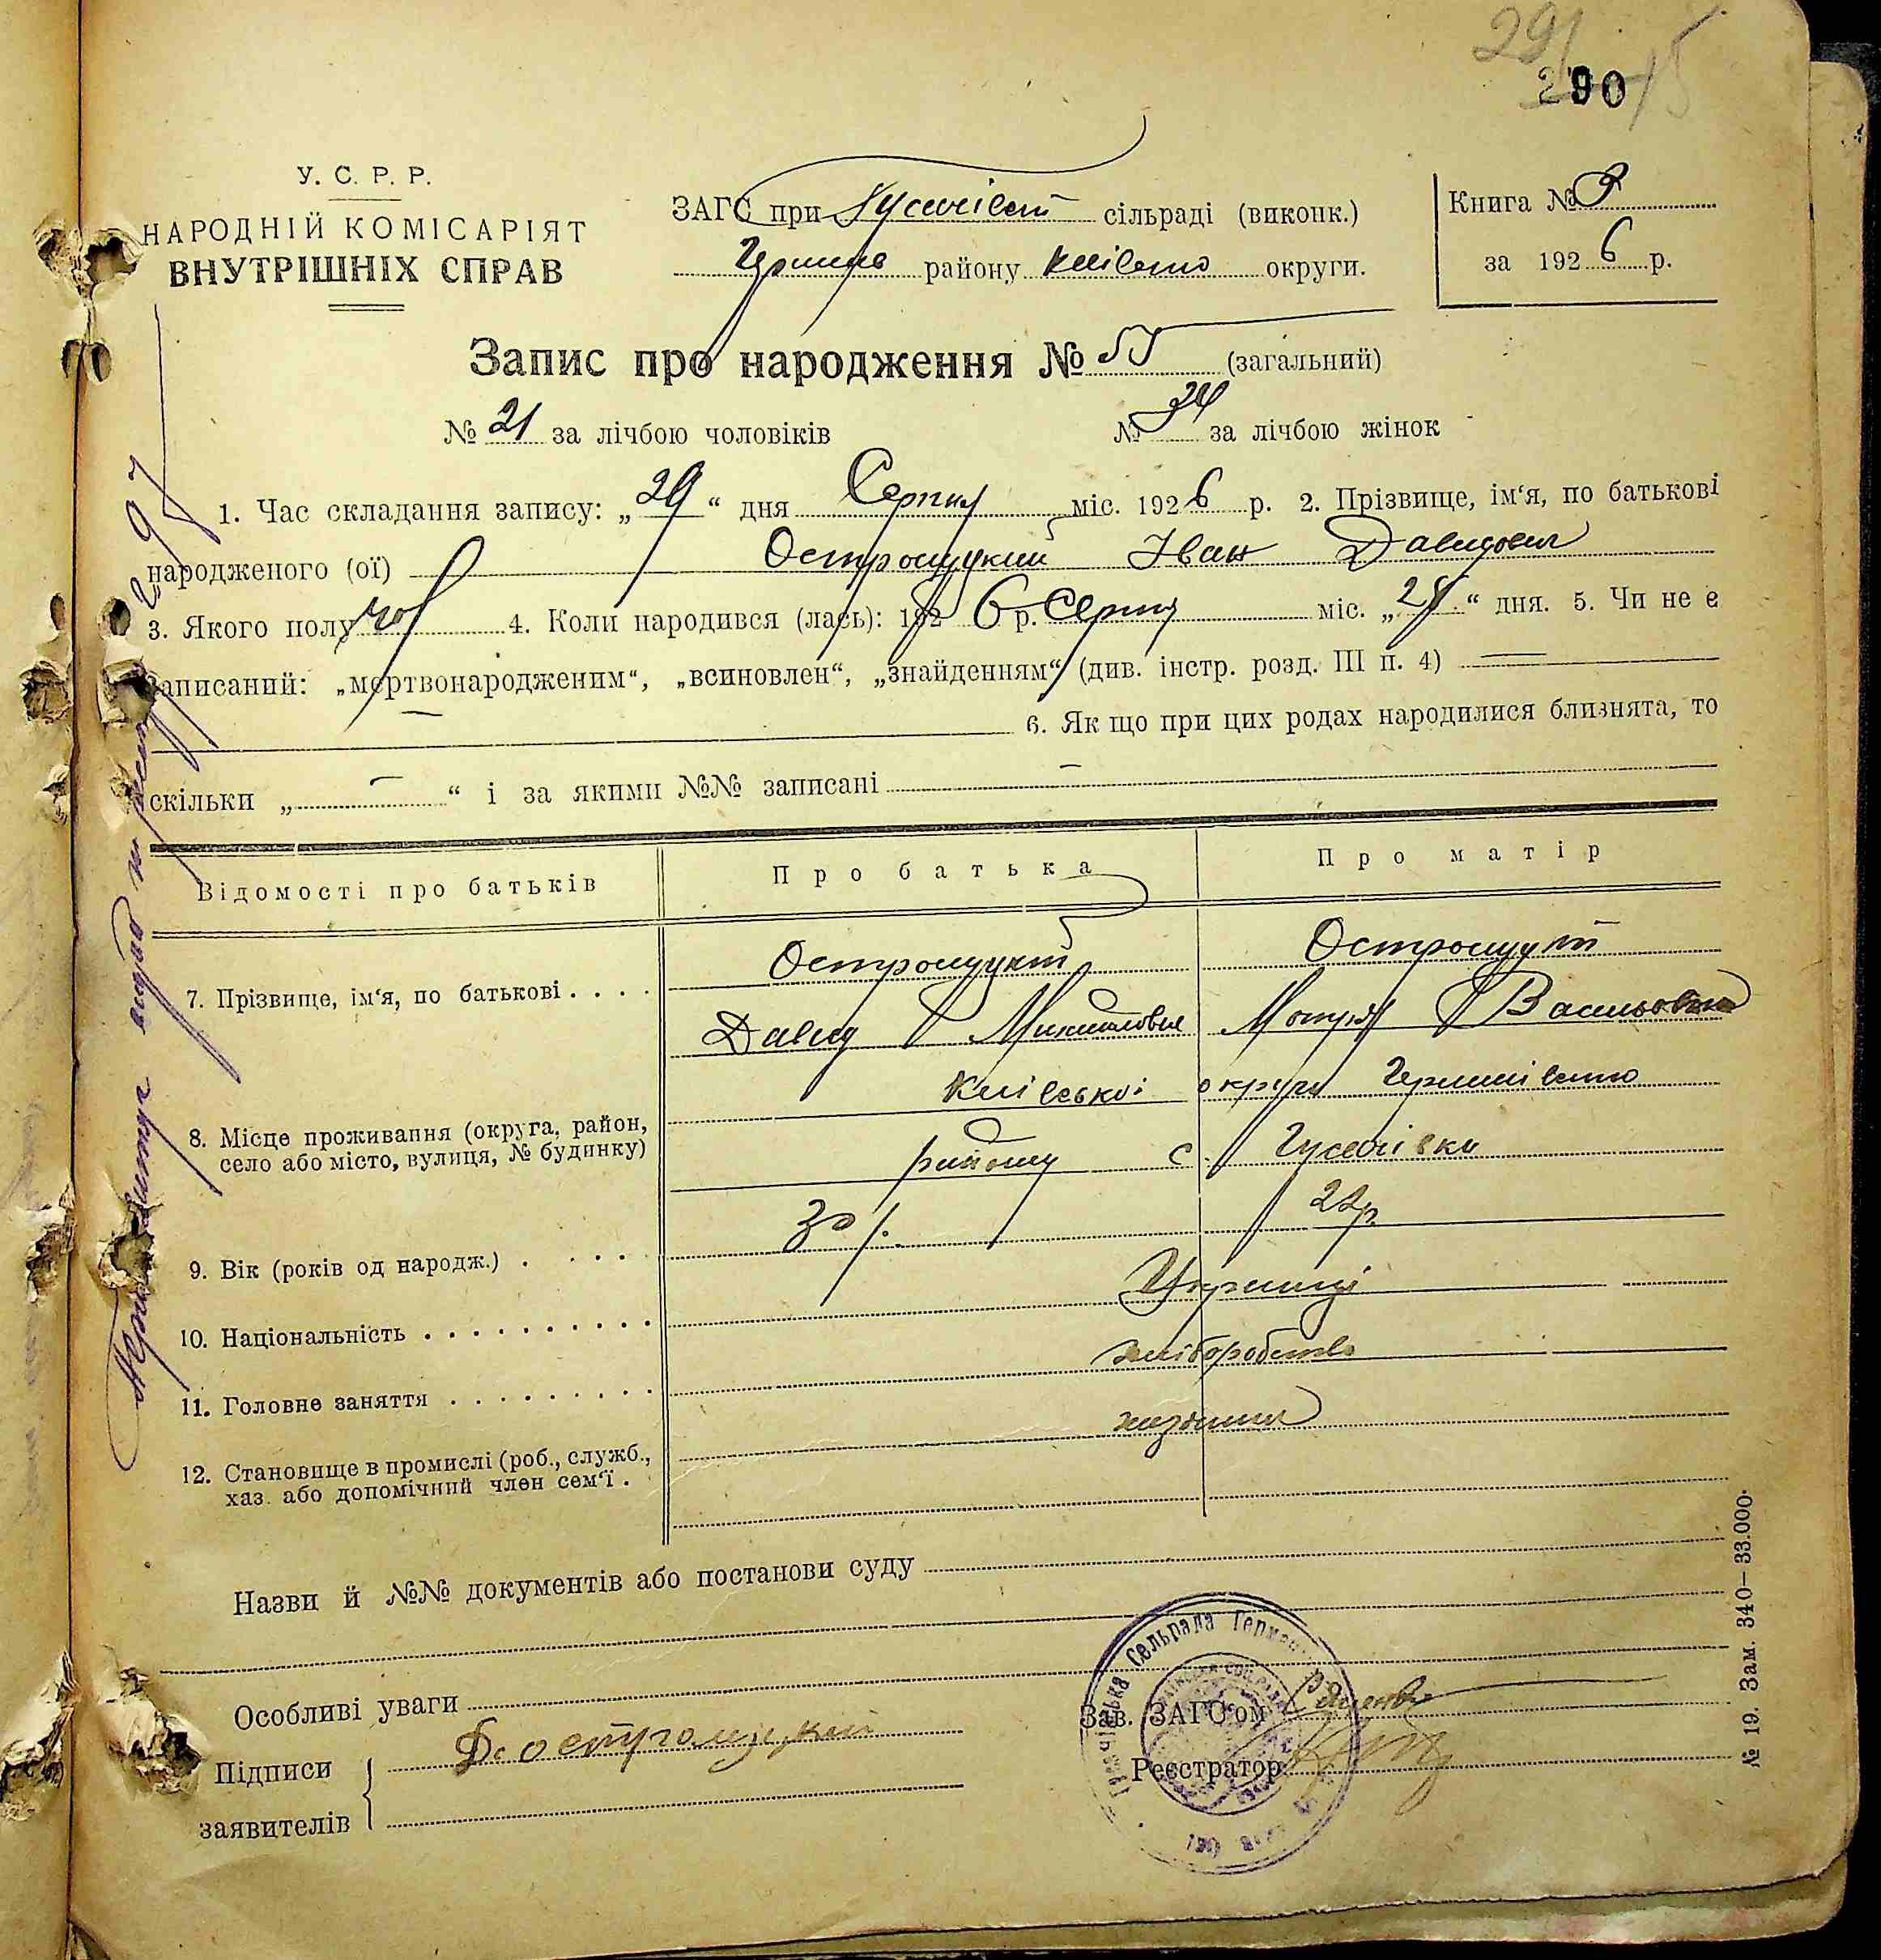 290
У. С. Р. Р.
НАРОДНІЙ КОМІСАРІЯТ
ВНУТРІШНІХ СПРАВ
ЗАГС при сільраді (виконк.)
району округи.
Книга №
за 1926 р.
Запис про народження № 55 (загальний)
№ 21 за лічбою чоловіків № 34 за лічбою жінок
1. Час складання запису: „29“ дня Серпня міс. 1926 р. 2. Прізвище, ім‘я, по батькові
народженого (ої) Остромуцкий Іван Давидович
3. Якого полу чол 4. Коли народився (лась): 1926 р. Серпня міс. „28“ дня. 5. Чи не є
записаний: „мертвонародженим“, „всиновлен“, „знайденням“ (див. інстр. розд. III п. 4) —
6. Як що при цих родах народилися близнята, то
скільки „ — “ і за якими №№ записані —
Відомості про батьків Про батька Про матір
7. Прізвище, ім‘я, по батькові . . . .
Давид Михайлович Мотря Васильовна
8. Місце проживання (округа, район,
село або місто, вулиця, № будинку)
Київської округи
району с.
9. Вік (років од народж.) . . . . . 30 р. 22 р.
10. Національність . . . . . . . . . . Українці
11. Головне заняття . . . . . . . . . хліборобство
12. Становище в промислі (роб., служб.,
хаз. або допомічний член сем‘ї .
Назви й №№ документів або постанови суду
Особливі уваги
Підписи
заявителів
Зав. ЗАГС‘ом
Реєстратор
№ 19. Зам. 340—33.000.